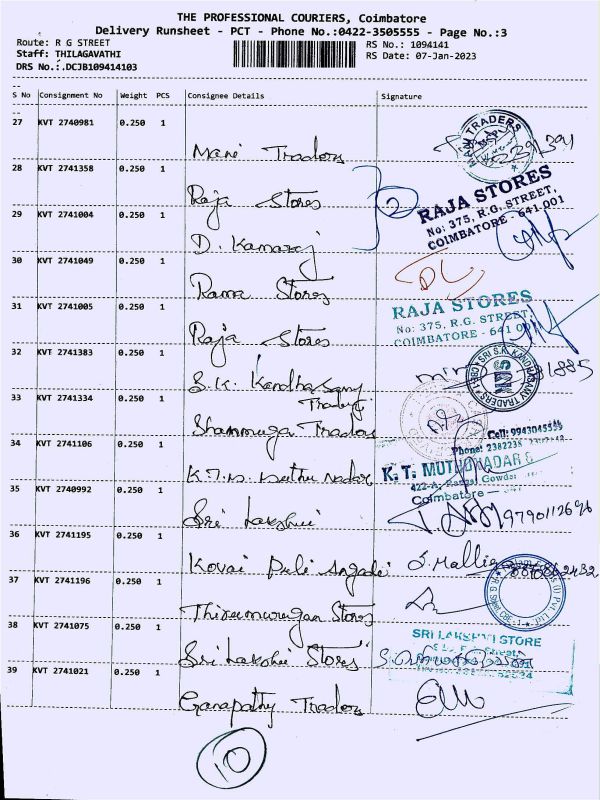 THE PROFESSIONAL COURIERS, Coimbatore
Delivery Runsheet - PCT - Phone No.:0422-3505555 - Page No.:3
Route: R G STREET
Staff: THILAGAVATHI
DRS No.:.DCJB109414103
RS No.: 1094141
RS Date: 07-Jan-2023
S No Consignment No Weight PCS Consignee Details Signature
27 KVT 2740981 0.250 1
Mani Traders
MANI TRADERS
28 KVT 2741358 0.250 1
Raja Stores
2
RAJA STORES
No: 375, R.G. STREET,
COIMBATORE - 641 001
29 KVT 2741004 0.250 1
D. Kamaraj
30 KVT 2741049 0.250 1
Rama Stores
DL
31 KVT 2741005 0.250 1
Raja Stores
RAJA STORES
No: 375, R.G. STREET,
COIMBATORE - 641 001
32 KVT 2741383 0.250 1
S.K. Kandhasamy
Traders
SRI S.K. KANDHASAMY TRADERS
33 KVT 2741334 0.250 1
Shanmuga Traders
Cell: 9943045555
34 KVT 2741106 0.250 1
K.T. Muthu Nadar
Phone: 2382238
K.T. MUTHUNADAR &
Coimbatore
35 KVT 2740992 0.250 1
Sri Lakshmi
9790112696
36 KVT 2741195 0.250 1
Kovai Puli Angadi
S. Mallia
37 KVT 2741196 0.250 1
Thirumurugan Stores
38 KVT 2741075 0.250 1
Sri Lakshmi Stores
SRI LAKSHMI STORE
39 KVT 2741021 0.250 1
Ganapathy Traders
10